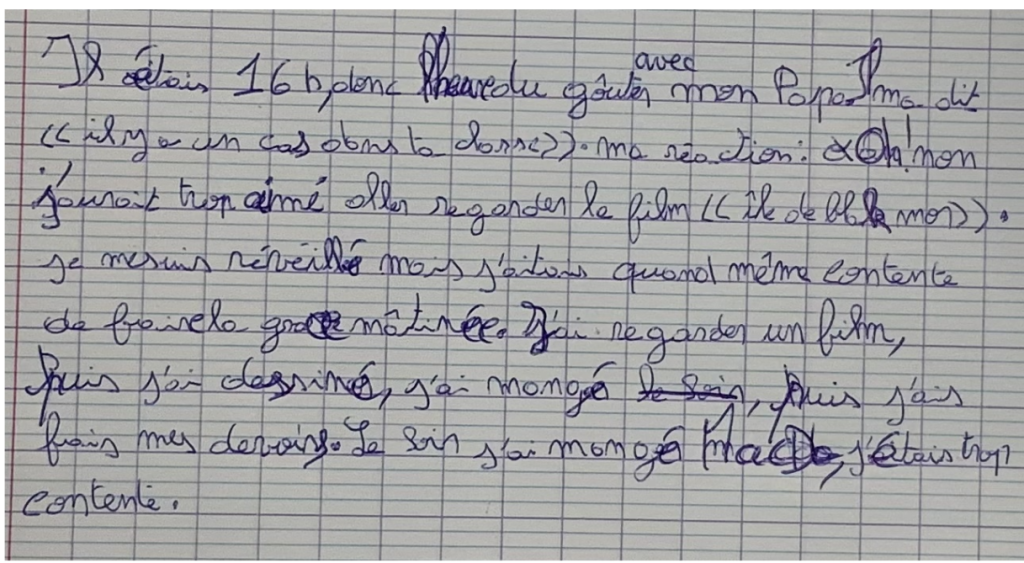 avec
Il étais 16 h, donc l'heure du goûter mon Papa Il ma dit
<< il y a un cas dans ta classe>>. ma réaction: non
j'aurait trop aimé aller regarder le film << île de mor>>.
je me suis réveillé mais j'aitais quand même contente
de faire la mâtinée. J'ai regarder un film,
puis j'ai dessiné, j'ai mangé le soir, puis j'ais
frais mes devoirs. Le soir j'ai mangé MacDo, j'étais trop
contente.